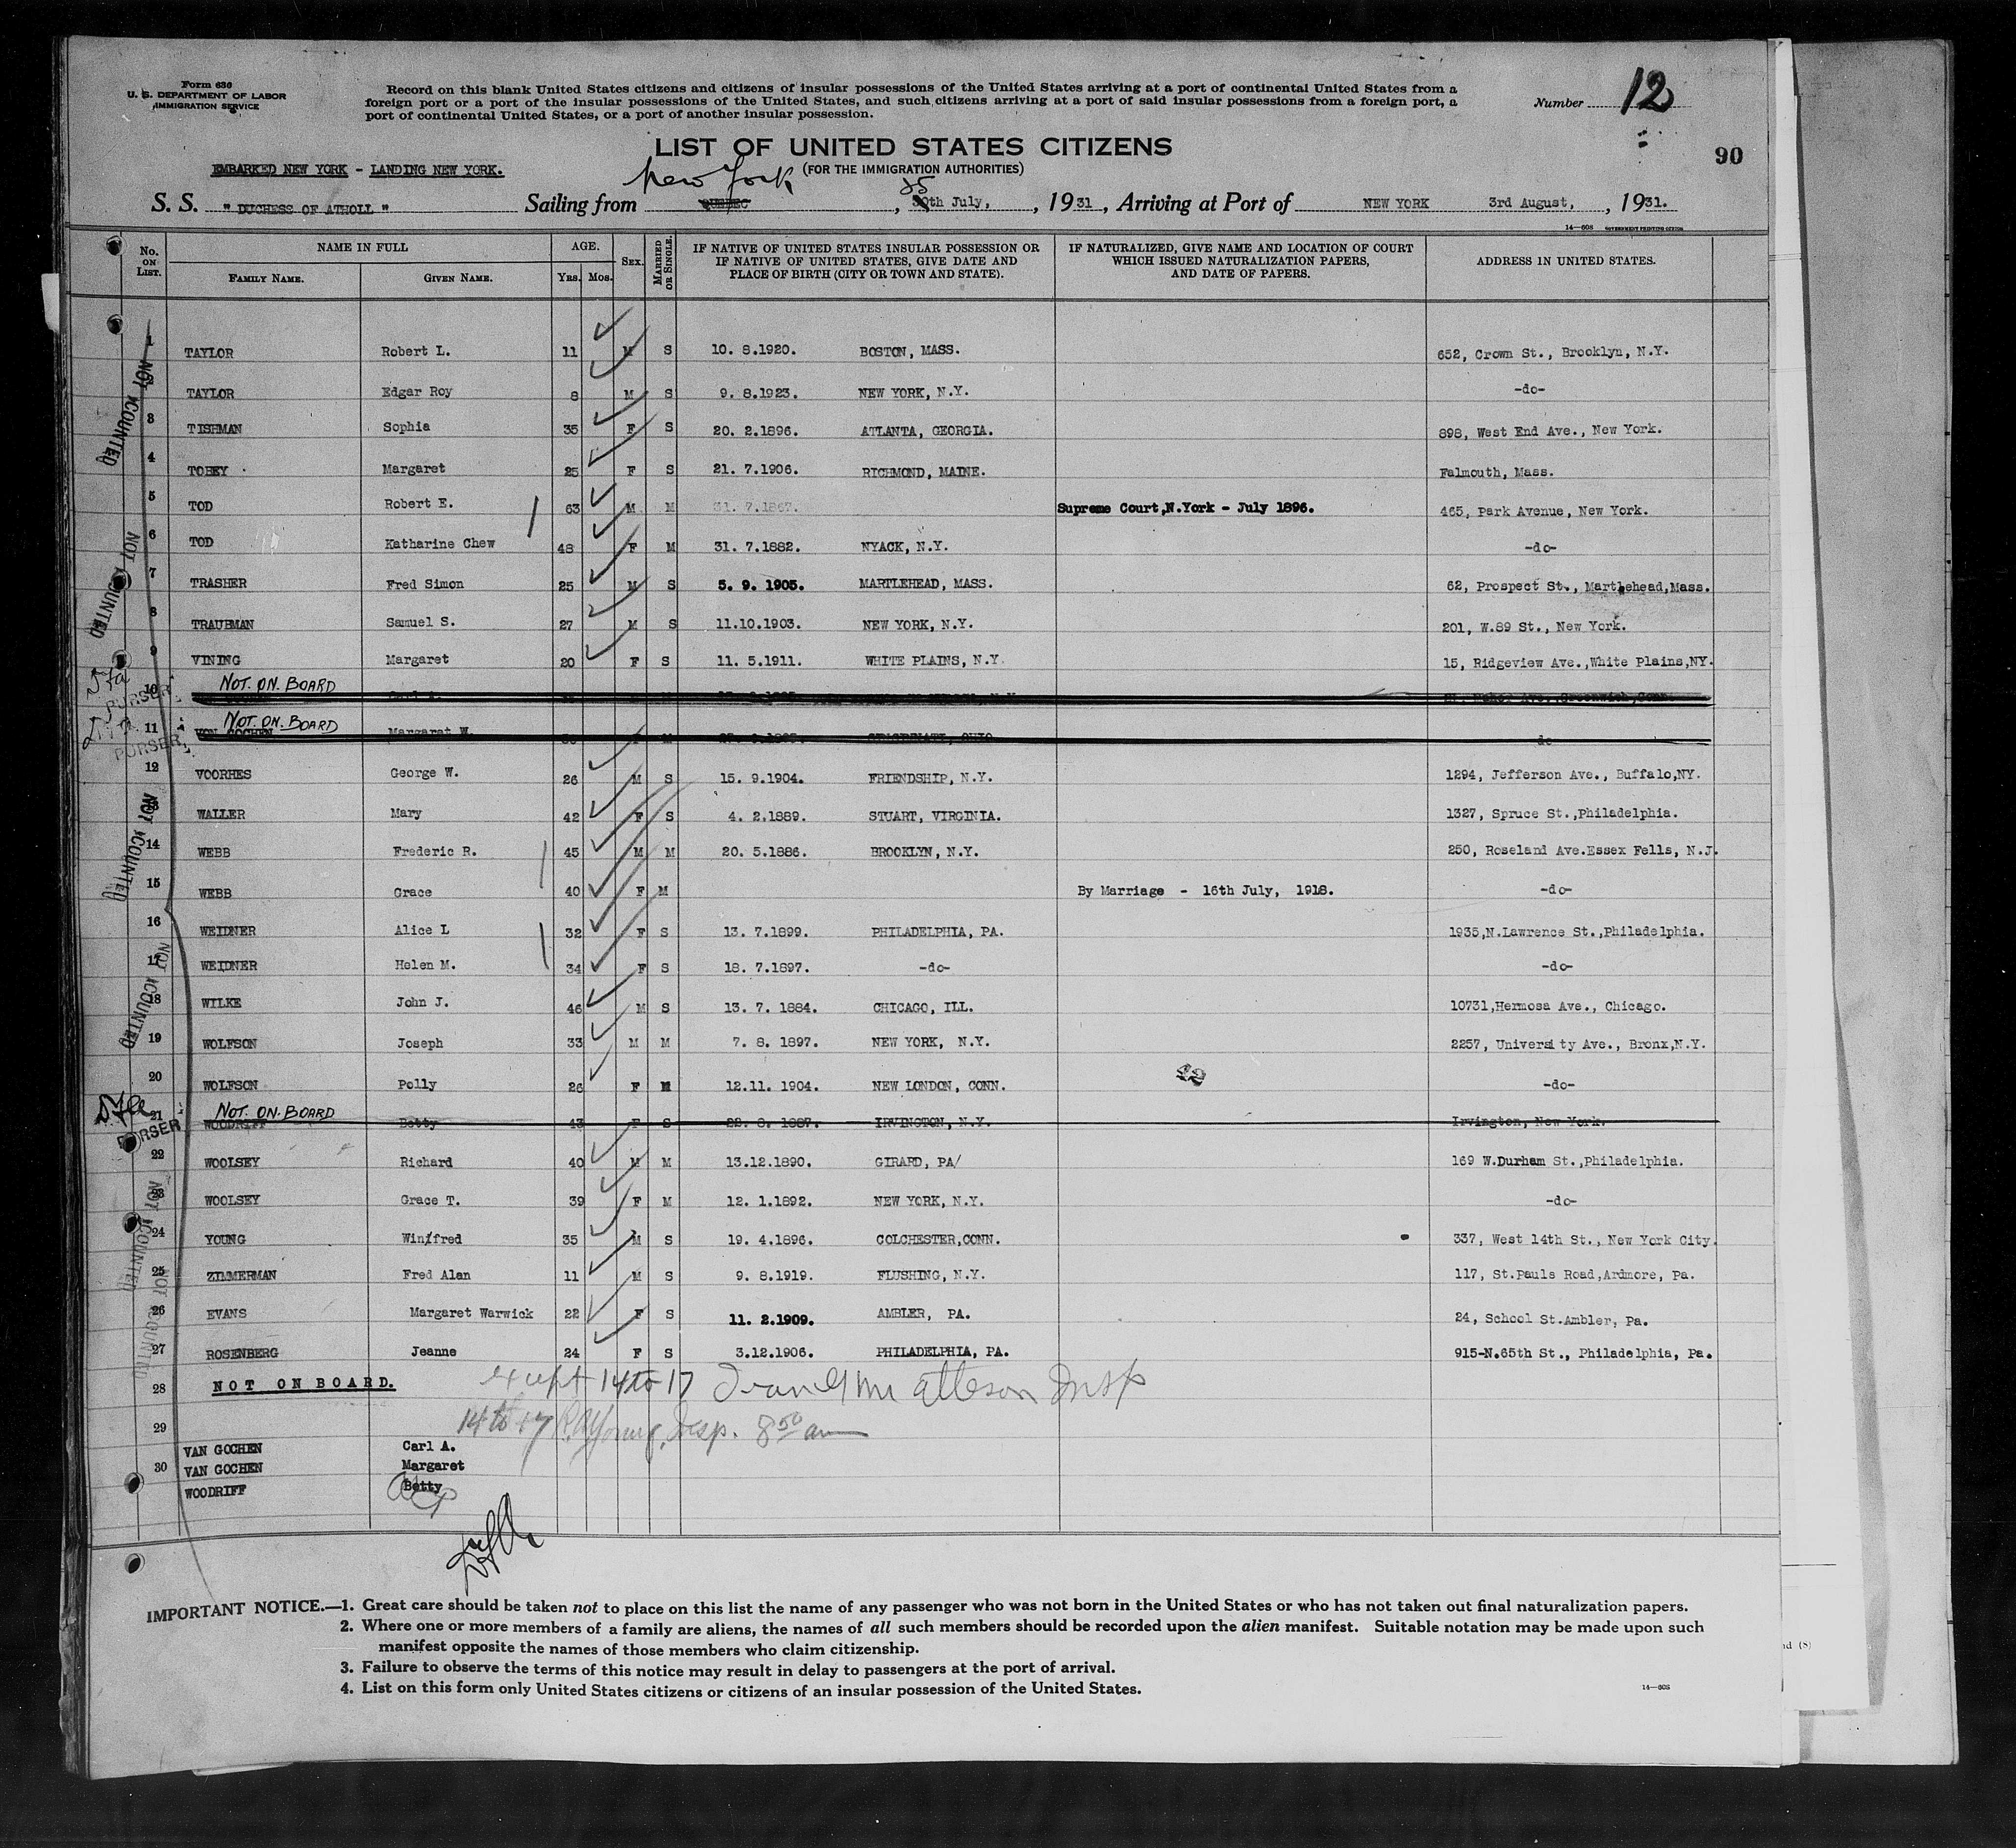 Form 630
U. S. DEPARTMENT OF LABOR
IMMIGRATION SERVICE
Record on this blank United States citizens and citizens of insular possessions of the United States arriving at a port of continental United States from a
foreign port or a port of the insular possessions of the United States, and such citizens arriving at a port of said insular possessions from a foreign port, a
port of continental United States, or a port of another insular possession.
Number 12
90
LIST OF UNITED STATES CITIZENS
(FOR THE IMMIGRATION AUTHORITIES)
EMBARKED NEW YORK - LANDING NEW YORK.
New York
25
S. S. " DUCHESS OF ATHOLL " Sailing from QUEBEC, th July, , 1931, Arriving at Port of NEW YORK 3rd August, , 1931.
14—608 GOVERNMENT PRINTING OFFICE
No. ON LIST. NAME IN FULL FAMILY NAME. GIVEN NAME. AGE. YRS. MOS. SEX. MARRIED OR SINGLE. IF NATIVE OF UNITED STATES INSULAR POSSESSION OR IF NATIVE OF UNITED STATES, GIVE DATE AND PLACE OF BIRTH (CITY OR TOWN AND STATE). IF NATURALIZED, GIVE NAME AND LOCATION OF COURT WHICH ISSUED NATURALIZATION PAPERS, AND DATE OF PAPERS. ADDRESS IN UNITED STATES.
1 TAYLOR Robert L. 11 M S 10. 8.1920. BOSTON, MASS. 652, Crown St., Brooklyn, N.Y.
2 TAYLOR Edgar Roy 8 M S 9. 8.1923. NEW YORK, N.Y. -do-
3 TISHMAN Sophia 35 F S 20. 2.1896. ATLANTA, GEORGIA. 898, West End Ave., New York.
4 TOBEY Margaret 25 F S 21. 7.1906. RICHMOND, MAINE. Falmouth, Mass.
5 TOD Robert E. 63 M M 31. 7.1867. Supreme Court,N.York - July 1896. 465, Park Avenue, New York.
6 TOD Katharine Chew 48 F M 31. 7.1882. NYACK, N.Y. -do-
7 TRASHER Fred Simon 25 M S 5. 9. 1905. MARTLEHEAD, MASS. 62, Prospect St., Martlehead,Mass.
8 TRAUBMAN Samuel S. 27 M S 11.10.1903. NEW YORK, N.Y. 201, W.89 St., New York.
9 VINING Margaret 20 F S 11. 5.1911. WHITE PLAINS, N.Y. 15, Ridgeview Ave.,White Plains,NY.
10 NOT. ON. BOARD Carl A.
11 NOT. ON. BOARD VON GOCHEN Margaret W. M CINCINNATI, OHIO do
12 VOORHES George W. 26 M S 15. 9.1904. FRIENDSHIP, N.Y. 1294, Jefferson Ave., Buffalo,NY.
13 WALLER Mary 42 F S 4. 2.1889. STUART, VIRGINIA. 1327, Spruce St.,Philadelphia.
14 WEBB Frederic R. 45 M M 20. 5.1886. BROOKLYN, N.Y. 250, Roseland Ave.Essex Fells, N.J.
15 WEBB Grace 40 F M By Marriage - 16th July, 1918. -do-
16 WEIDNER Alice L 32 F S 13. 7.1899. PHILADELPHIA, PA. 1935,N.Lawrence St.,Philadelphia.
17 WEIDNER Helen M. 34 F S 18. 7.1897. -do- -do-
18 WILKE John J. 46 M S 13. 7. 1884. CHICAGO, ILL. 10731,Hermosa Ave., Chicago.
19 WOLFSON Joseph 33 M M 7. 8. 1897. NEW YORK, N.Y. 2257, University Ave., Bronx,N.Y.
20 WOLFSON Polly 26 F M 12.11. 1904. NEW LONDON, CONN. -do-
21 NOT. ON. BOARD WOODRIFF Betty 43 F S 22. 8. 1887. IRVINGTON, N.Y. Irvington, New York.
22 WOOLSEY Richard 40 M M 13.12.1890. GIRARD, PA/ 169 W.Durham St.,Philadelphia.
23 WOOLSEY Grace T. 39 F M 12. 1.1892. NEW YORK, N.Y. -do-
24 YOUNG Winifred 35 M S 19. 4.1896. COLCHESTER,CONN. 337, West 14th St., New York City.
25 ZIMMERMAN Fred Alan 11 M S 9. 8.1919. FLUSHING, N.Y. 117, St.Pauls Road,Ardmore, Pa.
26 EVANS Margaret Warwick 22 F S 11. 2.1909. AMBLER, PA. 24, School St.Ambler, Pa.
27 ROSENBERG Jeanne 24 F S 3.12.1906. PHILADELPHIA, PA. 915-N.65th St., Philadelphia, Pa.
28 NOT ON BOARD. except 14 to 17 Insp
29 14 to 17 Young, Insp. 8 50 am
VAN GOCHEN Carl A.
30 VAN GOCHEN Margaret
WOODRIFF Betty
NOT COUNTED
NOT COUNTED
PURSER
PURSER
NOT COUNTED
NOT COUNTED
PURSER
NOT COUNTED
NOT COUNTED
IMPORTANT NOTICE.—1. Great care should be taken not to place on this list the name of any passenger who was not born in the United States or who has not taken out final naturalization papers.
2. Where one or more members of a family are aliens, the names of all such members should be recorded upon the alien manifest. Suitable notation may be made upon such
manifest opposite the names of those members who claim citizenship.
3. Failure to observe the terms of this notice may result in delay to passengers at the port of arrival.
4. List on this form only United States citizens or citizens of an insular possession of the United States.
14—608